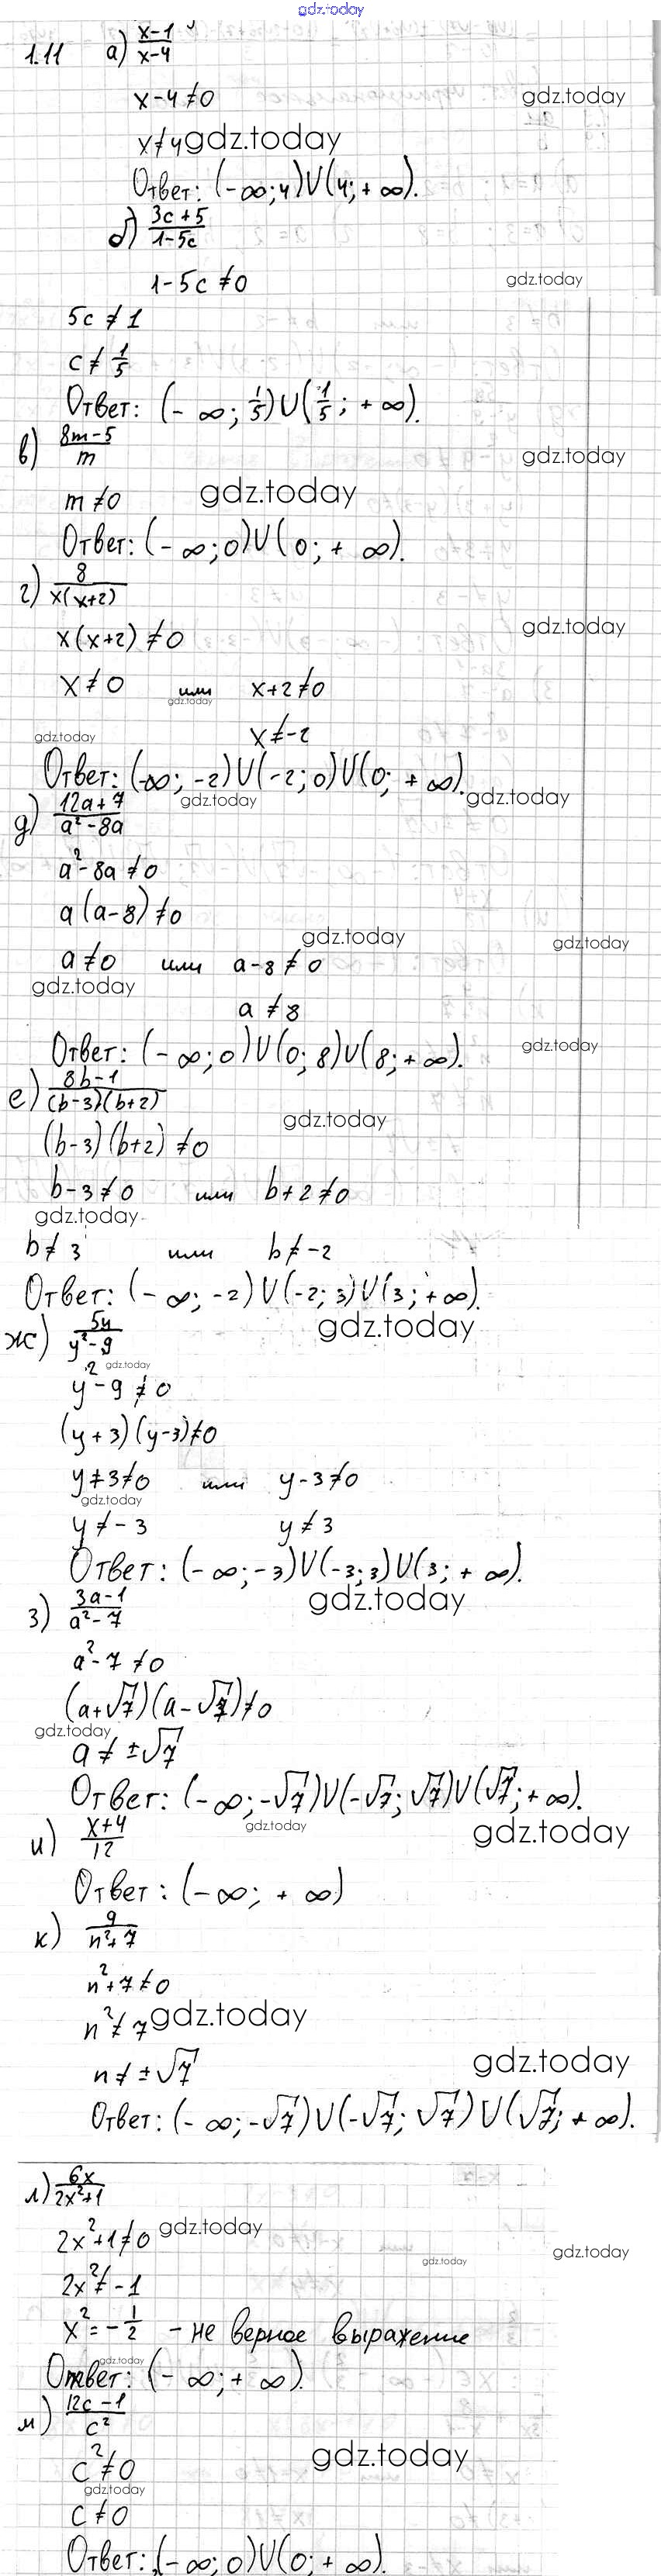 gdz.today
1.11 а) x-1/x-4
x-4≠0
gdz.today
x≠4
gdz.today
Ответ: (-∞;4)∪(4;+∞).
б) 3c+5/1-5c
1-5c≠0
gdz.today
5c≠1
c≠1/5
Ответ: (-∞; 1/5)∪(1/5; +∞).
в) 8m-5/m
gdz.today
m≠0
gdz.today
Ответ: (-∞;0)∪(0;+∞).
г) 8/x(x+2)
gdz.today
x(x+2)≠0
x≠0 или x+2≠0
gdz.today
gdz.today
x≠-2
Ответ: (-∞; -2)∪(-2;0)∪(0;+∞).
gdz.today
gdz.today
д) 12a+7/a²-8a
a²-8a≠0
a(a-8)≠0
gdz.today
gdz.today
a≠0 или a-8≠0
gdz.today
a≠8
Ответ: (-∞;0)∪(0;8)∪(8;+∞).
gdz.today
е) 8b-1/(b-3)(b+2)
gdz.today
(b-3)(b+2)≠0
b-3≠0 или b+2≠0
gdz.today
b≠3 или b≠-2
Ответ: (-∞; -2)∪(-2;3)∪(3;+∞).
gdz.today
ж) 5y/y²-9
gdz.today
y²-9≠0
(y+3)(y-3)≠0
y+3≠0 или y-3≠0
gdz.today
y≠-3 y≠3
Ответ: (-∞;-3)∪(-3;3)∪(3;+∞).
gdz.today
з) 3a-1/a²-7
a²-7≠0
(a+√7)(a-√7)≠0
gdz.today
a≠±√7
Ответ: (-∞;-√7)∪(-√7;√7)∪(√7;+∞).
gdz.today
gdz.today
и) x+4/12
Ответ: (-∞;+∞)
к) 9/n²+7
n²+7≠0
gdz.today
n²≠7
gdz.today
n≠±√7
Ответ: (-∞;-√7)∪(-√7;√7)∪(√7;+∞).
л) 6x/2x²+1
gdz.today
2x²+1≠0
gdz.today
gdz.today
2x²≠-1
x²=-1/2 - не верное выражение
gdz.today
Ответ: (-∞;+∞).
м) 12c-1/c²
gdz.today
c²≠0
gdz.today
c≠0
Ответ: (-∞;0)∪(0;+∞).